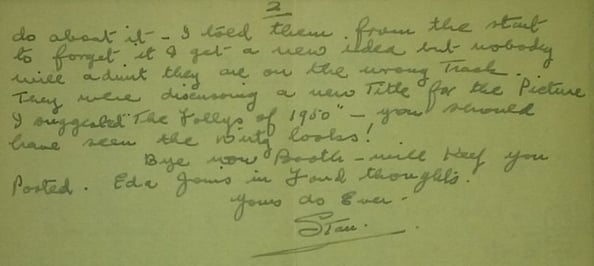 2
do about it - I told them from the start
to forget it & get a new idea but nobody
will admit they are on the wrong Track.
They were discussing a new Title for the Picture
I suggested "The Follys of 1950" - you should
have seen the dirty looks!
Bye now Booth - will Keep you
Posted. Eda Joins in Fond thoughts.
Yours as Ever -
Stan.